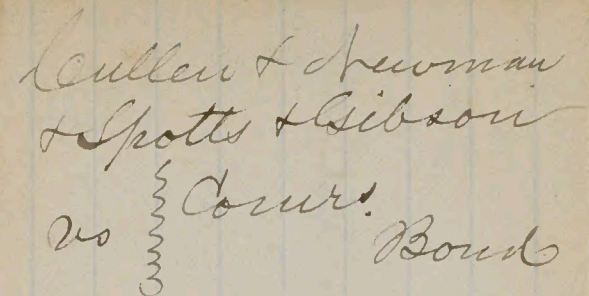 Cullen & Newman
& Spotts & Gibson
vs Comrs.
Bond